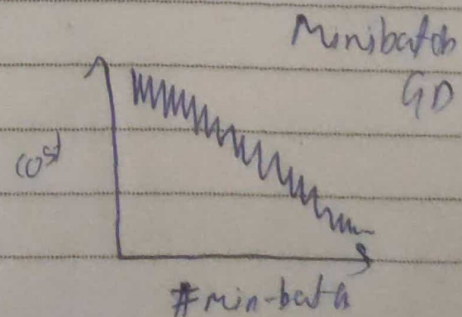 Minibatch
GD
cost
#min-batch